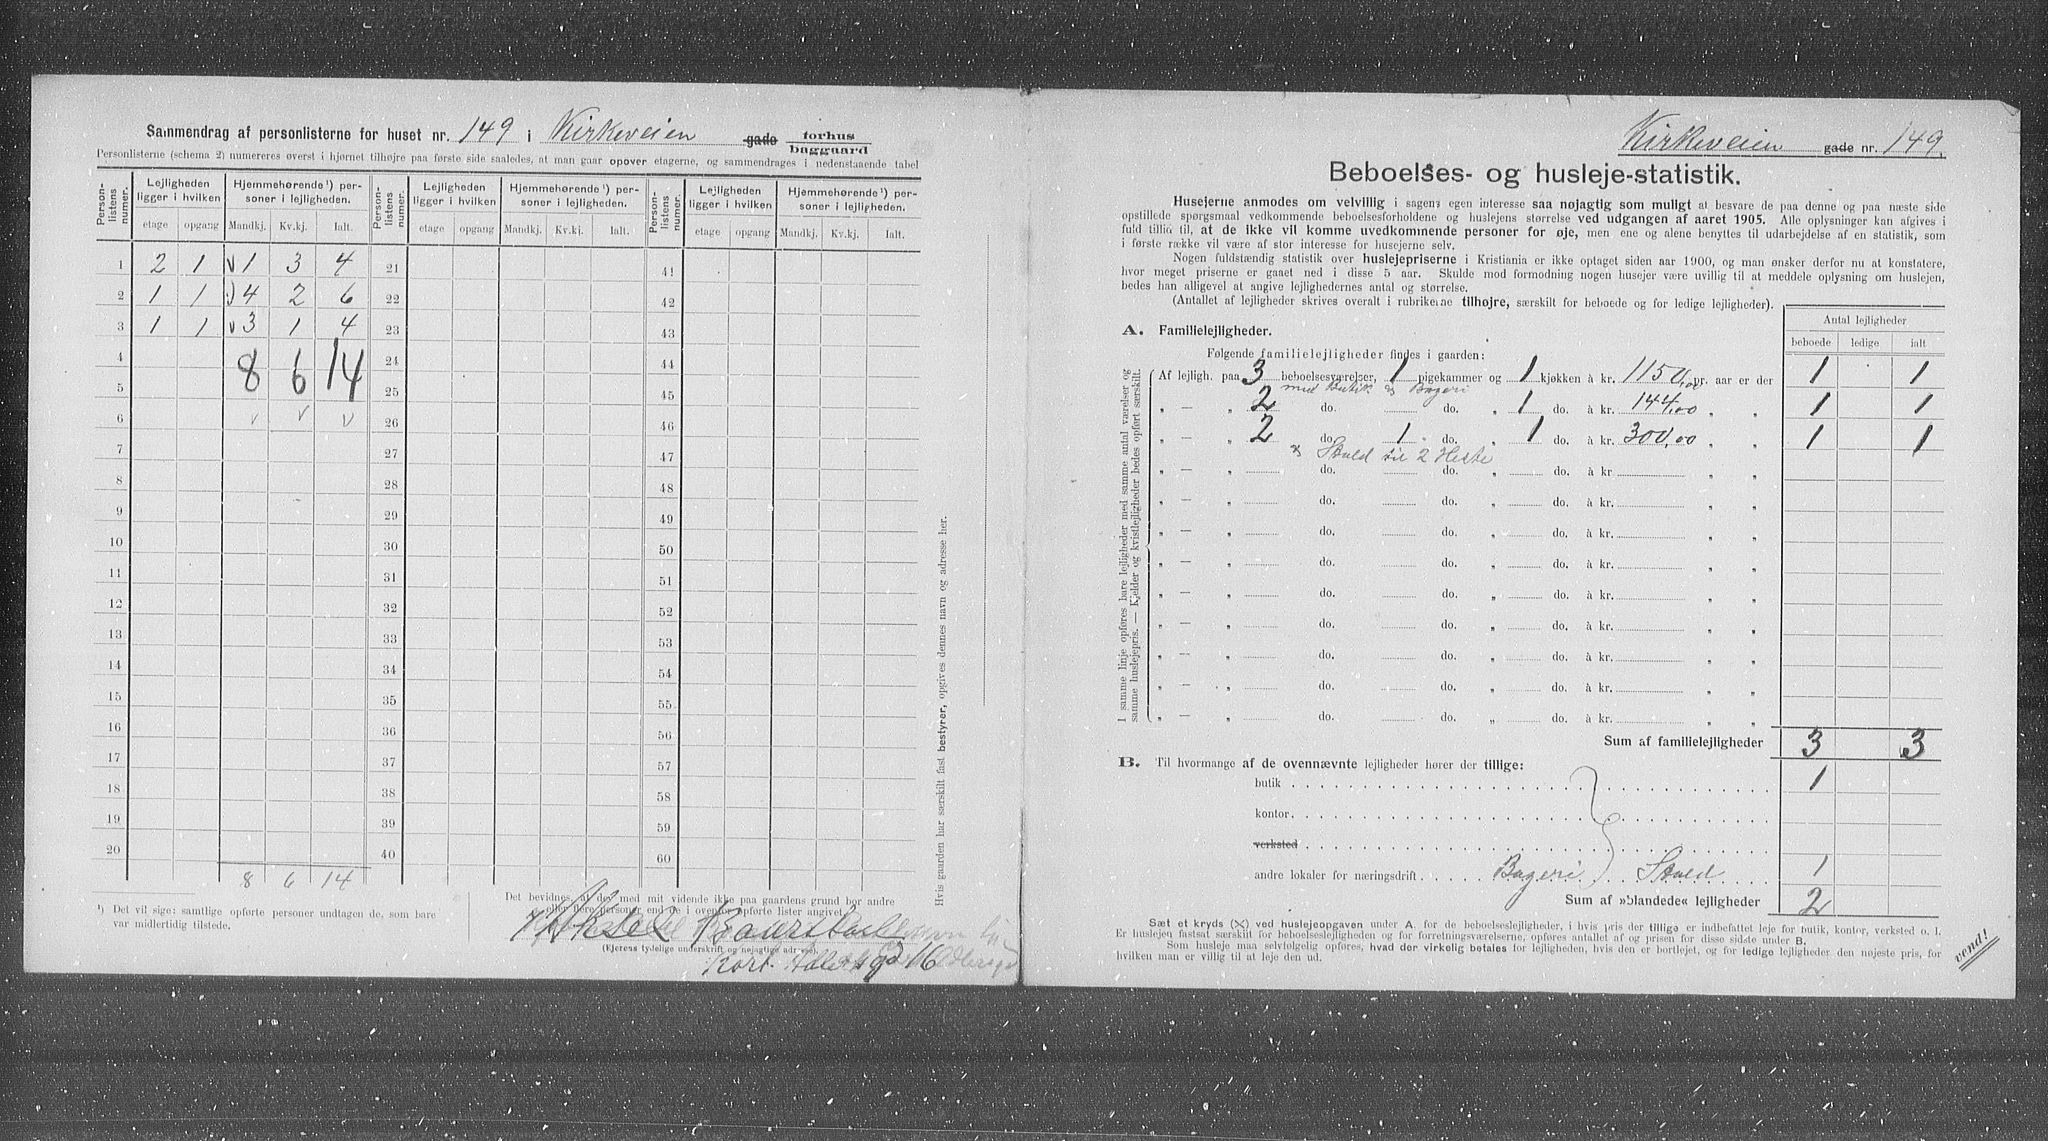 Sammendrag af personlisterne for huset nr. 149 i Kirkeveien gade forhus baggaard
Personlisterne (schema 2) numereres øverst i hjørnet tilhøjre paa første side saaledes, at man gaar opover etagerne, og sammendrages i nedenstaaende tabel
Person-listens numer. Lejligheden ligger i hvilken Hjemmehørende¹) personer i lejligheden. Person-listens numer. Lejligheden ligger i hvilken Hjemmehørende¹) personer i lejligheden. Person-listens numer. Lejligheden ligger i hvilken Hjemmehørende¹) personer i lejligheden.
etage opgang Mandkj. Kv.kj. Ialt. etage opgang Mandkj. Kv.kj. Ialt. etage opgang Mandkj. Kv.kj. Ialt.
1 2 1 v 1 3 4 21 41
2 1 1 4 2 6 22 42
3 1 1 v 3 1 4 23 43
4 8 6 14 24 44
5 25 45
6 v v v 26 46
7 27 47
8 28 48
9 29 49
10 30 50
11 31 51
12 32 52
13 33 53
14 34 54
15 35 55
16 36 56
17 37 57
18 38 58
19 39 59
20 40 60
8 6 14
¹) Det vil sige: samtlige opførte personer undtagen de, som bare var midlertidig tilstede.
Det bevidnes, at der med mit vidende ikke paa gaardens grund bor andre
eller flere personer end de i ovenfor opførte lister angivet.
Aksel
(Ejerens tydelige underskrift og nøjagtige adresse).
Kort Adelersgd 16
Hvis gaarden har særskilt fast bestyrer, opgives dennes navn og adresse her.
Kirkeveien gade nr. 149.
Beboelses- og husleje-statistik.
Husejerne anmodes om velvillig i sagens egen interesse saa nøjagtig som muligt at besvare de paa denne og paa næste side
opstillede spørgsmaal vedkommende beboelsesforholdene og huslejens størrelse ved udgangen af aaret 1905. Alle oplysninger kan afgives i
fuld tillid til, at de ikke vil komme uvedkommende personer for øje, men ene og alene benyttes til udarbejdelse af en statistik, som
i første række vil være af stor interesse for husejerne selv.
Nogen fuldstændig statistik over huslejepriserne i Kristiania er ikke optaget siden aar 1900, og man ønsker derfor nu at konstatere,
hvor meget priserne er gaaet ned i disse 5 aar. Skulde mod formodning nogen husejer være uvillig til at meddele oplysning om huslejen,
bedes han alligevel at angive lejlighedernes antal og størrelse.
(Antallet af lejligheder skrives overalt i rubrikerne tilhøjre, særskilt for beboede og for ledige lejligheder).
Antal lejligheder
beboede ledige ialt
A. Familielejligheder.
Følgende familielejligheder findes i gaarden:
I samme linje opføres bare lejligheder med samme antal værelser og
samme huslejepris. — Kjelder og kvistlejligheder bedes opført særskilt.
Af lejligh. paa 3 beboelsesværelser, 1 pigekammer og 1 kjøkken à kr. 1150,00 pr. aar er der 1 1
med Butik og Bageri
„ — „ 2 do. do. „ 1 do. à kr. 144,00 „ „ 1 1
„ — „ 2 do. 1 do. „ 1 do. à kr. 300,00 „ „ 1 1
og Stald til 2 Heste
„ — „ do. do. „ do. à kr. „ „
„ — „ do. do. „ do. à kr. „ „
„ — „ do. do. „ do. à kr. „ „
„ — „ do. do. „ do. à kr. „ „
„ — „ do. do. „ do. à kr. „ „
„ — „ do. do. „ do. à kr. „ „
„ — „ do. do. „ do. à kr. „ „
„ — „ do. do. „ do. à kr. „ „
„ — „ do. do. „ do. à kr. „ „
Sum af familielejligheder 3 3
B. Til hvormange af de ovennævnte lejligheder hører der tillige:
butik 1
kontor
verksted
andre lokaler for næringsdrift Bageri Stald 1
Sum af »blandede« lejligheder 2
Sæt et kryds (×) ved huslejeopgaven under A. for de beboelseslejligheder, i hvis pris der tillige er indbefattet leje for butik, kontor, verksted o. l.
Er huslejen fastsat særskilt for beboelseslejligheden og for forretningsværelserne, opføres antallet af og prisen for disse sidste under B.
Som husleje maa selvfølgelig opføres, hvad der virkelig betales for lejligheden, hvis den er bortlejet, og for ledige lejligheder den nøjeste pris, for
hvilken man er villig til at leje den ud.
vend!